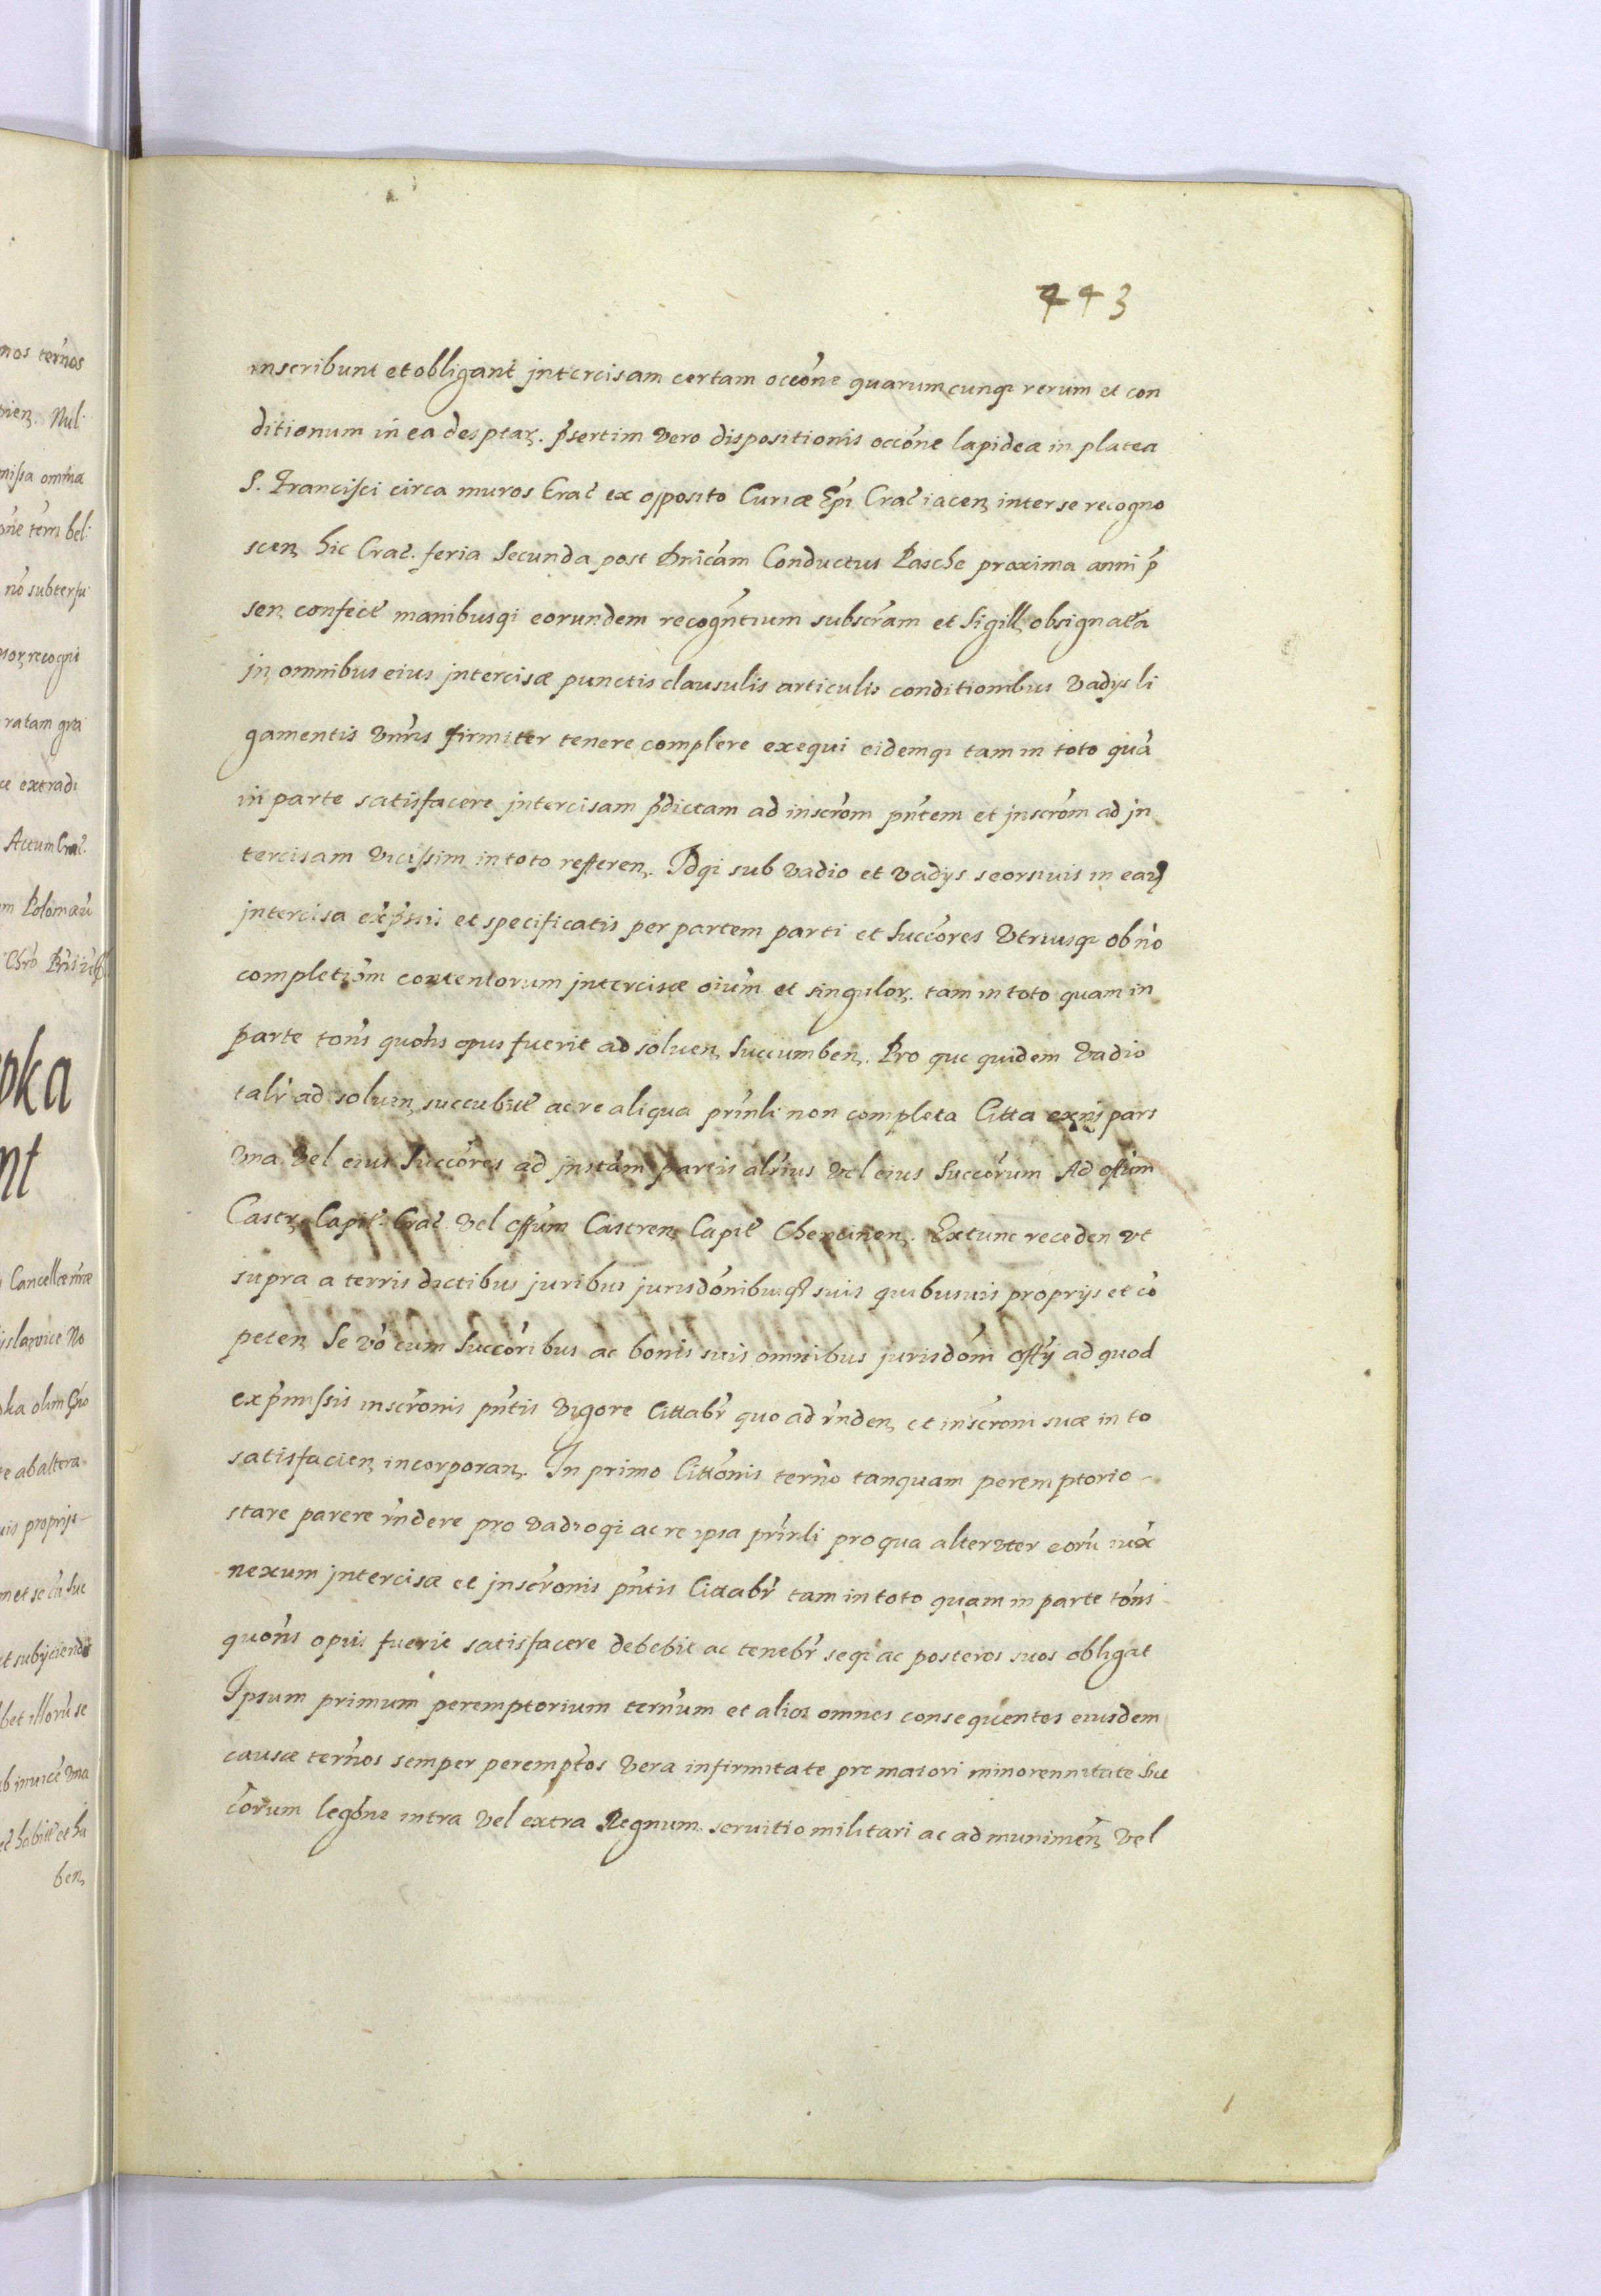 443
inscribunt et obligant jntercisam certam occõne quarumcunq3 rerum et con
ditionum in ea desptaȝ. p̃sertim vero dispositionis occõne lapideæ in platea
S. Francisci circa muros Crac̃ ex opposito Curiæ Ep̃i Crac̃ iacenȝ inter se recogno
scenȝ hic Crac̃. feria Secunda post dnicãm Conductus Pasche proxima anni p̃
senȝ confect̃ manibusqȝ eorundem recogñtium subscr̃am et Sigillȝ obsignatã
jn omnibus eius jntercisæ punctis clausulis articulis conditionibus vadys li
gamentis vnir̃is firmiter tenere complere exequi eidemqȝ tam in toto quã
in parte satisfacere jntercisam p̃dictam ad inscr̃om pñtem et jnscr̃om ad jn
tercisam vicissim in toto refferenȝ. Idqȝ sub vadio et vadys seorsiuis in eadȝ
jntercisa exp̃ssis et specificatis per partem parti et Succõres vtriusqȝ ob nõ
completiõm contentorum jntercisæ oĩum et singuloȝ. tam in toto quam in
parte tõns quõns opus fuerit ad soluenȝ Succumbenȝ. Pro quo quidem vadio
talr̃ ad soluenȝ succubit̃ ac re aliqua prinl̃i non completa Citta exñis pars
vna vel eius Succõres ad jnstãm partis alr̃ius vel eius Succõrum Ad off̃um
Castrȝ Capit̃. Crac̃ vel off̃um Castrenȝ Capit̃ Chencinenȝ. Extunc recedenȝ vt
supra a terris dictibus juribus jurisdõnibusqȝ suis quibusuis proprijs et cõ
petenȝ Se võ cum Succõribus ac bonis suis omnibus jurisdõni off̃ij ad quod
exp̃missis inscr̃onis pñtis vigore Cittabr̃ quo ad r̃ndenȝ et inscr̃oni suæ in to
satisfacienȝ incorporanȝ. In primo Cittõnis terñio tanquam peremptorio
stare parere r̃ndere pro vadioqȝ ac re ipsa prinl̃i pro qua alteruter eorũ iux̃
nexum jntercisæ et jnscr̃onis pñtis Cittabr̃ tam in toto quam in parte tõns
quõns opus fuerit satisfacere debebit ac tenebr̃ seqȝ ac posteros suos obligat
Ipsum primum peremptorium terñum et alios omnes consequentes eiusdem
causæ terños semper peremptõs vera infirmitate pre maiori minorennitate Suc
cõrum legõne intra vel extra Regnum seruitio militari ac ad munimenȝ vel